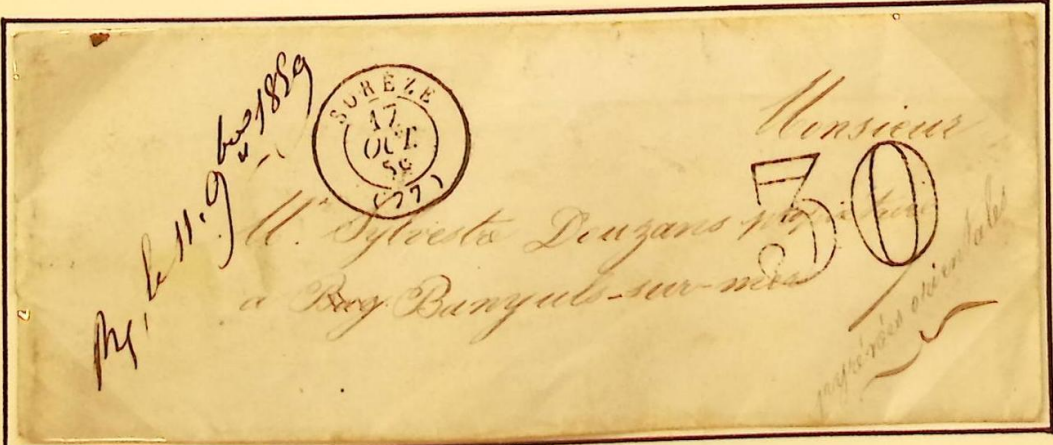 Rp, le 11. 9bre 1859
SORÈZE
17
OCT.
59
(77)
Monsieur
30
Mr. Sylvestre Douzans propriétaire
à Bug Banyuls-sur-mer
pyrénées orientales